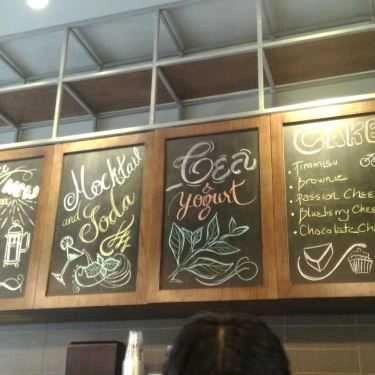 Mocktail
and
Soda
Tea
&
Yogurt
CAKE
• Tiramisu
• Brownie
• Passion Chee
• Blueberry Chee
• Chocolate Ch